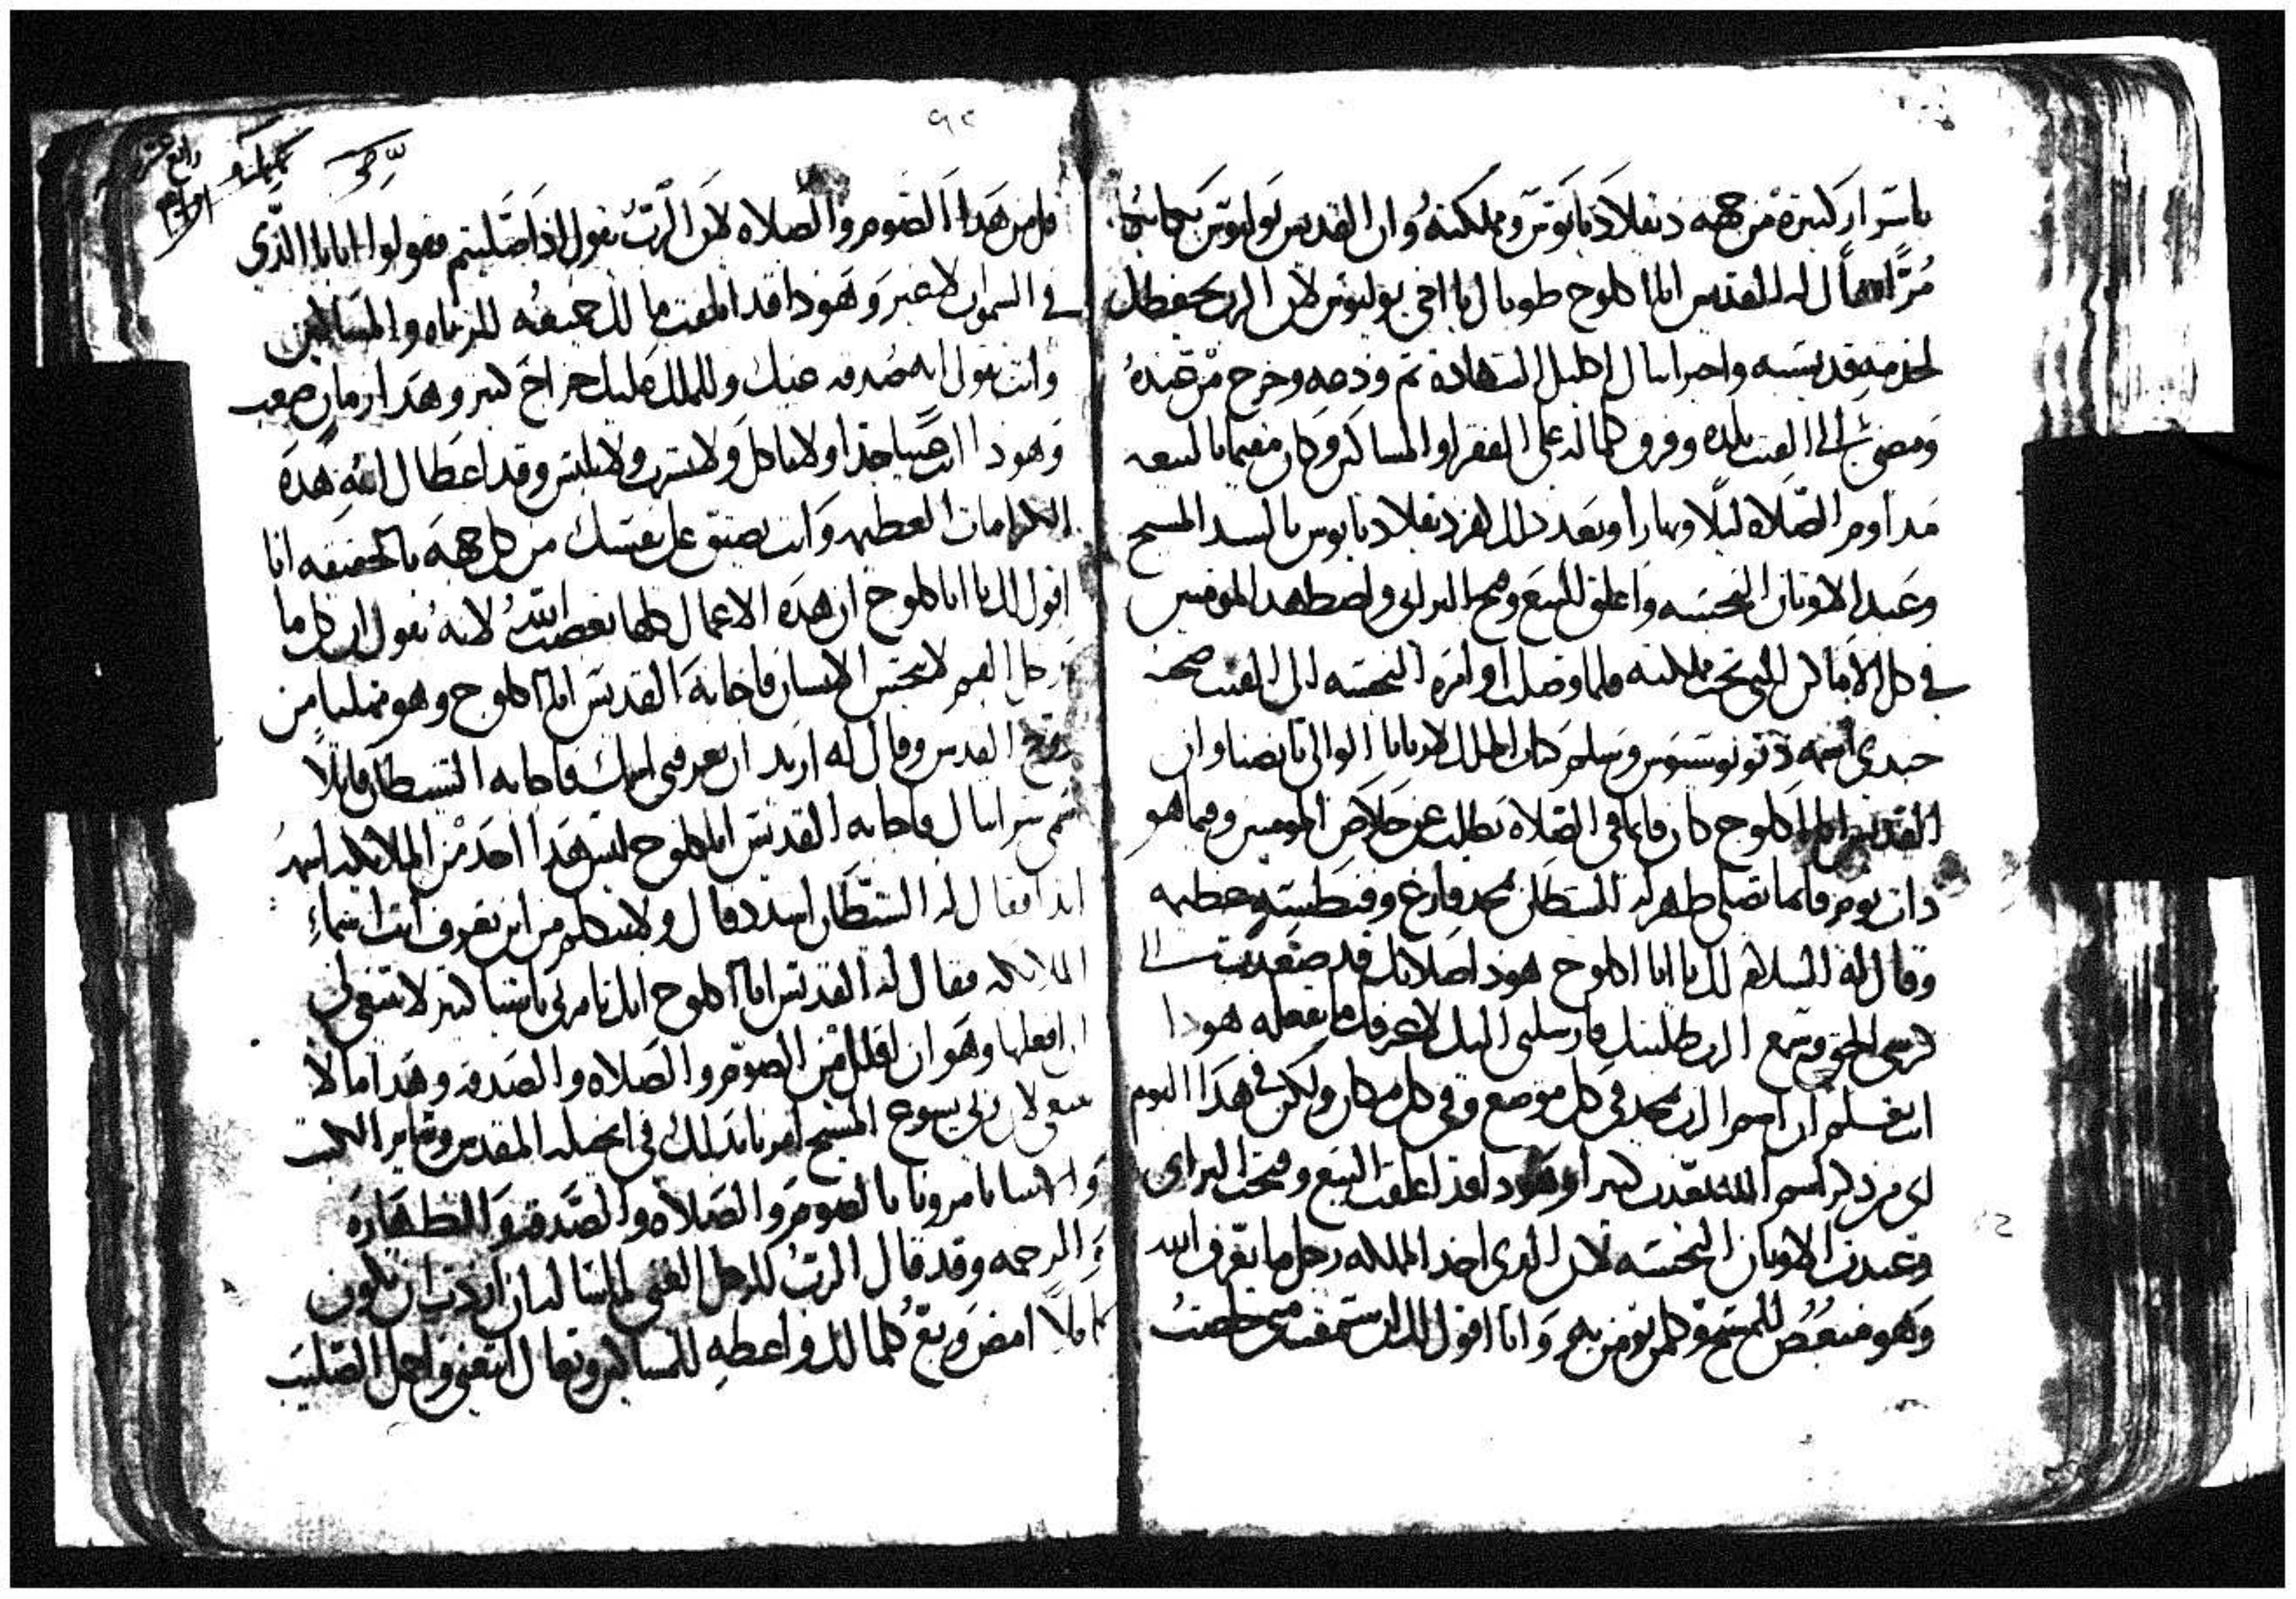 باسرار كثيرة من جهة دقلاديانوس ومملكته وان القديس بوليوس
فقال له القديس ابا اكلوج طوباك يا اخي يوليوس لان الرب يحفظك
لخدمة قديسيه واخيرا تنال اكليل الشهادة ثم ودعه وخرج من عنده
ومضى الى الفنت بلده وفرق كلما له على الفقرا والمساكين وكان مقيما بالبيعه
مداوم الصلاه ليلا ونهارا وبعد ذلك كفر دقلاديانوس بالسيد المسيح
وعبد الاوثان النجسه واغلق البيع وفتح البرابي واضطهد المومنين
في كل الاماكن التي تحت مملكته فلما وصلت اوامره النجسه الى الفنت صحبة
جندي اسمه ديونوسيوس وسلم كتاب الملك لاريانا الوالي بانصنا وان
القديس ابا اكلوج كان قايما في الصلاه يطلب عن خلاص المومنين وفيما هو
ذات يوم قايما يصلي ظهر له الشيطان بمجد فارغ وفنطسيه عظيمه
وقال له السلام لك يا ابا اكلوج هوذا صلاتك قد صعدت الى
كرسي الحق وسمع الرب طلبتك وارسلني اليك لاعرفك ما تفعله هوذا
انت تعلم ان اسم الرب يمجد في كل موضع وفي كل مكان ولكن في هذا اليوم
كل من ذكر اسم الله يعذب كثيرا وهوذا قد اغلقت البيع وفتحت البرابي
وعبدت الاوثان النجسه لان الذي اخذ المملكه رجل ما يعرف الله
وهو مبغض للمسيح وكلمن يومن به وانا اقول لك ان سمعت مني خلصت
قلل من هدا الصوم والصلاه لان الرب يقول اذا صليتم فقولوا ابانا الذي
في السموات لا غير وهوذا قد انفقت مالك جميعه للغرباه والمساكين
وانت تقول انه صدقه عنك وللملك عليك خراج كبير وهدا زمان صعب
وهوذا انت عييا جدا ولا تاكل ولا تشرب ولا تلبس وقد اعطاك الله هده
الكرامات العظيمه وانت تضيق على نفسك من كل جهة بالحقيقه انا
اقول لك يا ابا اكلوج ان هده الاعمال كلها تغضب الله لانه يقول ان كل ما
دخل الفم لا ينجس الانسان فاجابه القديس ابا اكلوج وهو ممتليا من
روح القدس وقال له اريد ان تعرفني اسمك فاجابه الشيطان قايلا
اسمي سراتيال فاجابه القديس ابا اكلوج ليس هدا احد من الملايكه اسمه
ابدا فقال له الشيطان اسدد فاك ولا تتكلم من اين تعرف انت اسماء
الملايكه فقال له القديس ابا اكلوج انك تامرني باشيا كثيره لا ينبغي لي
ان افعلها وهو ان اقلل من الصوم والصلاه والصدقه وهدا ما لا
ينبغي لان ربي يسوع المسيح امرنا بدلك في انجيله المقدس وساير الكتب
والانبيا يامرونا بالصوم والصلاه والصدقه والطهاره
والرحمه وقد قال الرب للرجل الغني لما ساله ان اردت ان تكون
كاملا امض وبع كلما لك واعطه للمساكين وتعال اتبعني واحمل الصليب